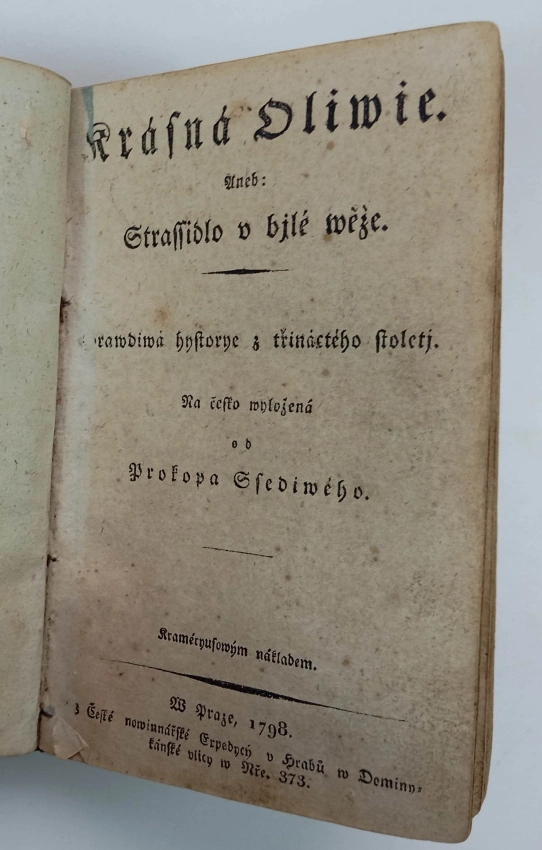 Krásná Oliwie.
Aneb:
Strassidlo v bjlé wěže.
Prawdiwá hystorye z třináctého stoletj.
Na česko wyložená
od
Prokopa Ssediwého.
Kraméryusowým nákladem.
W Praze, 1798.
z České nowinnářské Expedycý v Hrabů w Dominy⸗
kánské vlicy w Nře. 373.